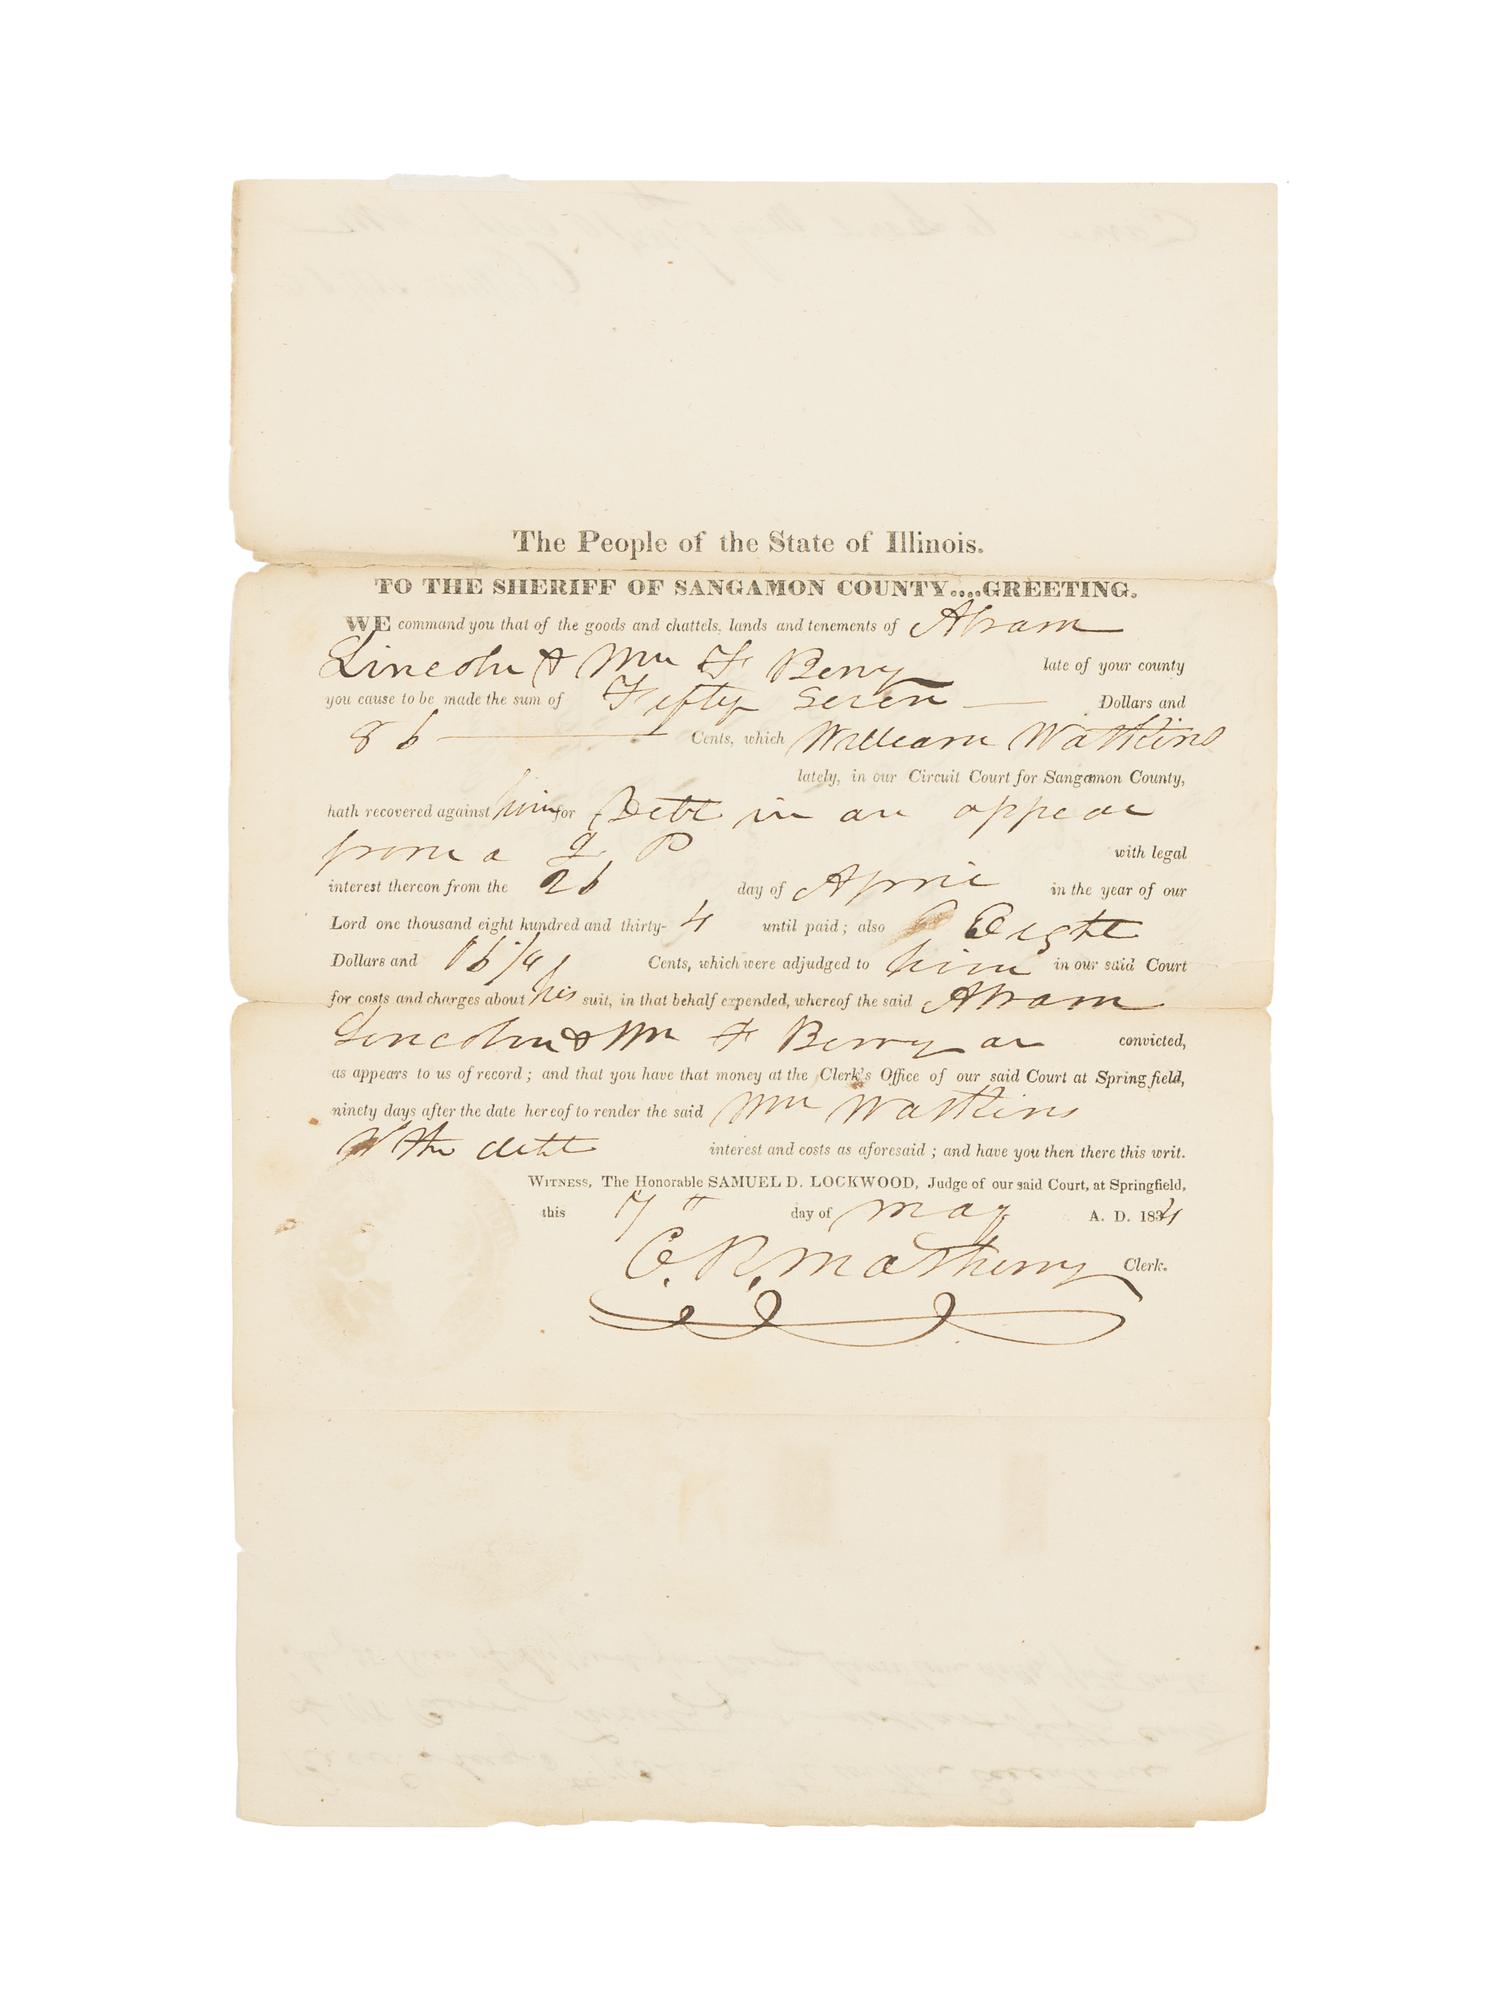 The People of the State of Illinois.
TO THE SHERIFF OF SANGAMON COUNTY....GREETING.
WE command you that of the goods and chattels, lands and tenements of Abram
Lincoln & Wm F Berry late of your county
you cause to be made the sum of Fifty Seven — Dollars and
86 — Cents, which William Watkins
lately, in our Circuit Court for Sangamon County,
hath recovered against him for Debt in an appeal
from a J P with legal
interest thereon from the 26 day of April in the year of our
Lord one thousand eight hundred and thirty- 4 until paid; also Eight
Dollars and Cents, which were adjudged to him in our said Court
for costs and charges about his suit, in that behalf expended, whereof the said Abram
Lincoln & Wm F Berry ar convicted,
as appears to us of record; and that you have that money at the Clerk's Office of our said Court at Springfield,
ninety days after the date hereof to render the said Wm Watkins
the debt interest and costs as aforesaid; and have you then there this writ.
WITNESS, The Honorable SAMUEL D. LOCKWOOD, Judge of our said Court, at Springfield,
this 7th day of May A. D. 1834
C. R. Matheny Clerk.